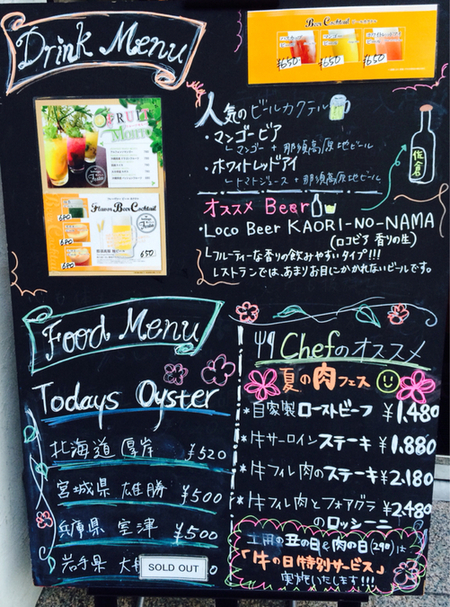 Drink Menu
Beer Cocktail
¥650
¥650
¥650
人気のビールカクテル
・マンゴービア
マンゴー + 那須高原地ビール
ホワイトレッドアイ
トマトジュース + 那須高原地ビール
佐倉
オススメ Beer
・Loco Beer KAORI-NO-NAMA
(ロコビア 香りの生)
フルーティーな香りの飲みやすいタイプ!!!
レストランでは、あまりお目にかかれないビールです。
Mojito
Flavor Beer Cocktail
650
Food Menu
Todays Oyster
北海道 厚岸 ¥520
宮城県 雄勝 ¥500
兵庫県 室津 ¥500
岩手県
SOLD OUT
Chefのオススメ
夏の肉フェス
*自家製ローストビーフ ¥1,480
*牛サーロインステーキ ¥1,880
*牛フィレ肉のステーキ ¥2,180
*牛フィレ肉とフォアグラ ¥2,480
のロッシーニ
土用の丑の日と肉の日(29日)は
「牛の日特別サービス」
実施いたします!!!